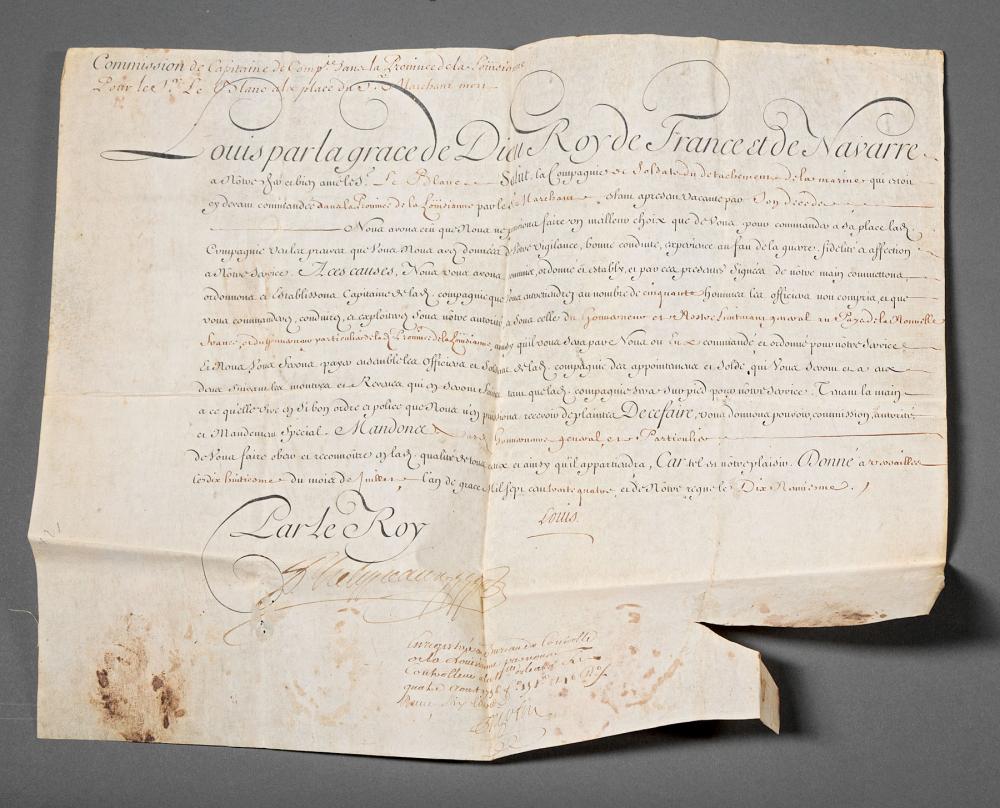 Commission de Capitaine de Comp.ie dans la Province de la Loüisianne
Pour le S.r Le Blanc a la place du S.r Marchant mort
Louis par la grace de Dieu Roy de France et de Navarre
a Notre cher et bien amé le S.r Le Blanc Salut. la Compagnie de Soldats du detachement de la marine qui est en
cy devant commandée dans la Province de la Loüisianne par le S.r Marchant, estant apresent vacante par Son deceds
Nous avons crû que Nous ne pouvions faire un meilleur choix que de Vous, pour commander a Sa place lad.
Compagnie par les preuves que Vous Nous avez données de Votre vigilance, bonne conduite, experience au fait de la guerre, fidelité et affection
a Notre Service. A ces causes, Nous vous avons commis, ordonné et Estably, et par ces presentes Signées de nôtre main commettons,
ordonnons, et Establissons Capitaine de lad. compagnie que Vous entretiendrez au nombre de cinquante hommes les officiers non compris, et que
vous commanderez, conduirez, et exploiterez Sous nôtre autorité et Sous celle du Gouverneur et Nostre Lieutenant general au Pays de la Nouvelle
france, et du Gouverneur particulier de lad. Province de la Loüisianne, ainsy qu'il vous Sera par Nous ou Eux commandé et ordonné pour nôtre Service
Et Nous Vous Ferons payer ensemble les Officiers et Soldats de lad. compagnie des appointemens et Solde, qui Vous Seront et a eux
deus Suivant les montres et Reveues qui en Seront faites tant que lad. compagnie Sera Sur pied pour nôtre Service. Tenant la main
a ce qu'elle vive en Si bon ordre et police que Nous n'en puissions recevoir de plaintes De ce faire, vous donnons pouvoir, commission, autorité
et Mandement Special. Mandons Gouverneurs general, et Particulier
de Vous faire obeir et reconnoître en lad. qualité de tous ceux et ainsy qu'il appartiendra, Car tel est nôtre plaisir. Donné a versailles
le dix huitiesme du mois de Juillet l'an de grace Mil Sept cent trente quatre, et de Nôtre regne le Dix Neuviesme.
Louis
Par le Roy
Phelypeaux
Enregistré au Bureau du Controlle
de la Louisianne par nous
Controlleur a la N.lle Orleans le